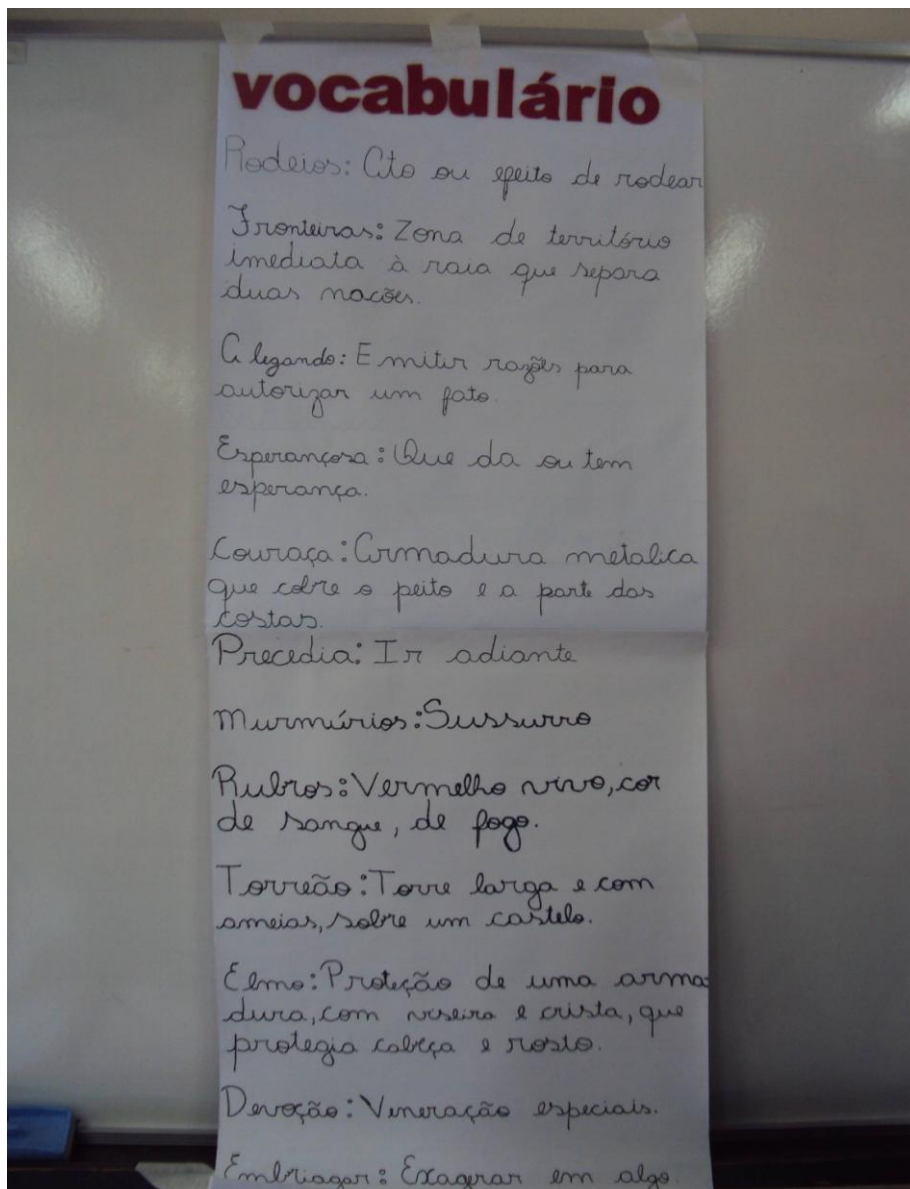 vocabulário
Rodeios: Ato ou efeito de rodear
Fronteiras: Zona de território
imediata à raia que separa
duas nacões.
Alegando: Emitir razões para
autorizar um fato.
Esperançosa: Que da ou tem
esperança.
Couraça: Armadura metalica
que cobre o peito e a parte das
costas.
Precedia: Ir adiante
Murmúrios: Sussurro
Rubros: Vermelho vivo, cor
de sangue, de fogo.
Torreão: Torre larga e com
ameias, sobre um castelo.
Elmo: Proteção de uma arma-
dura, com viseira e crista, que
protegia cabeça e rosto.
Devoção: Veneração especiais.
Embriagar: Exagerar em algo